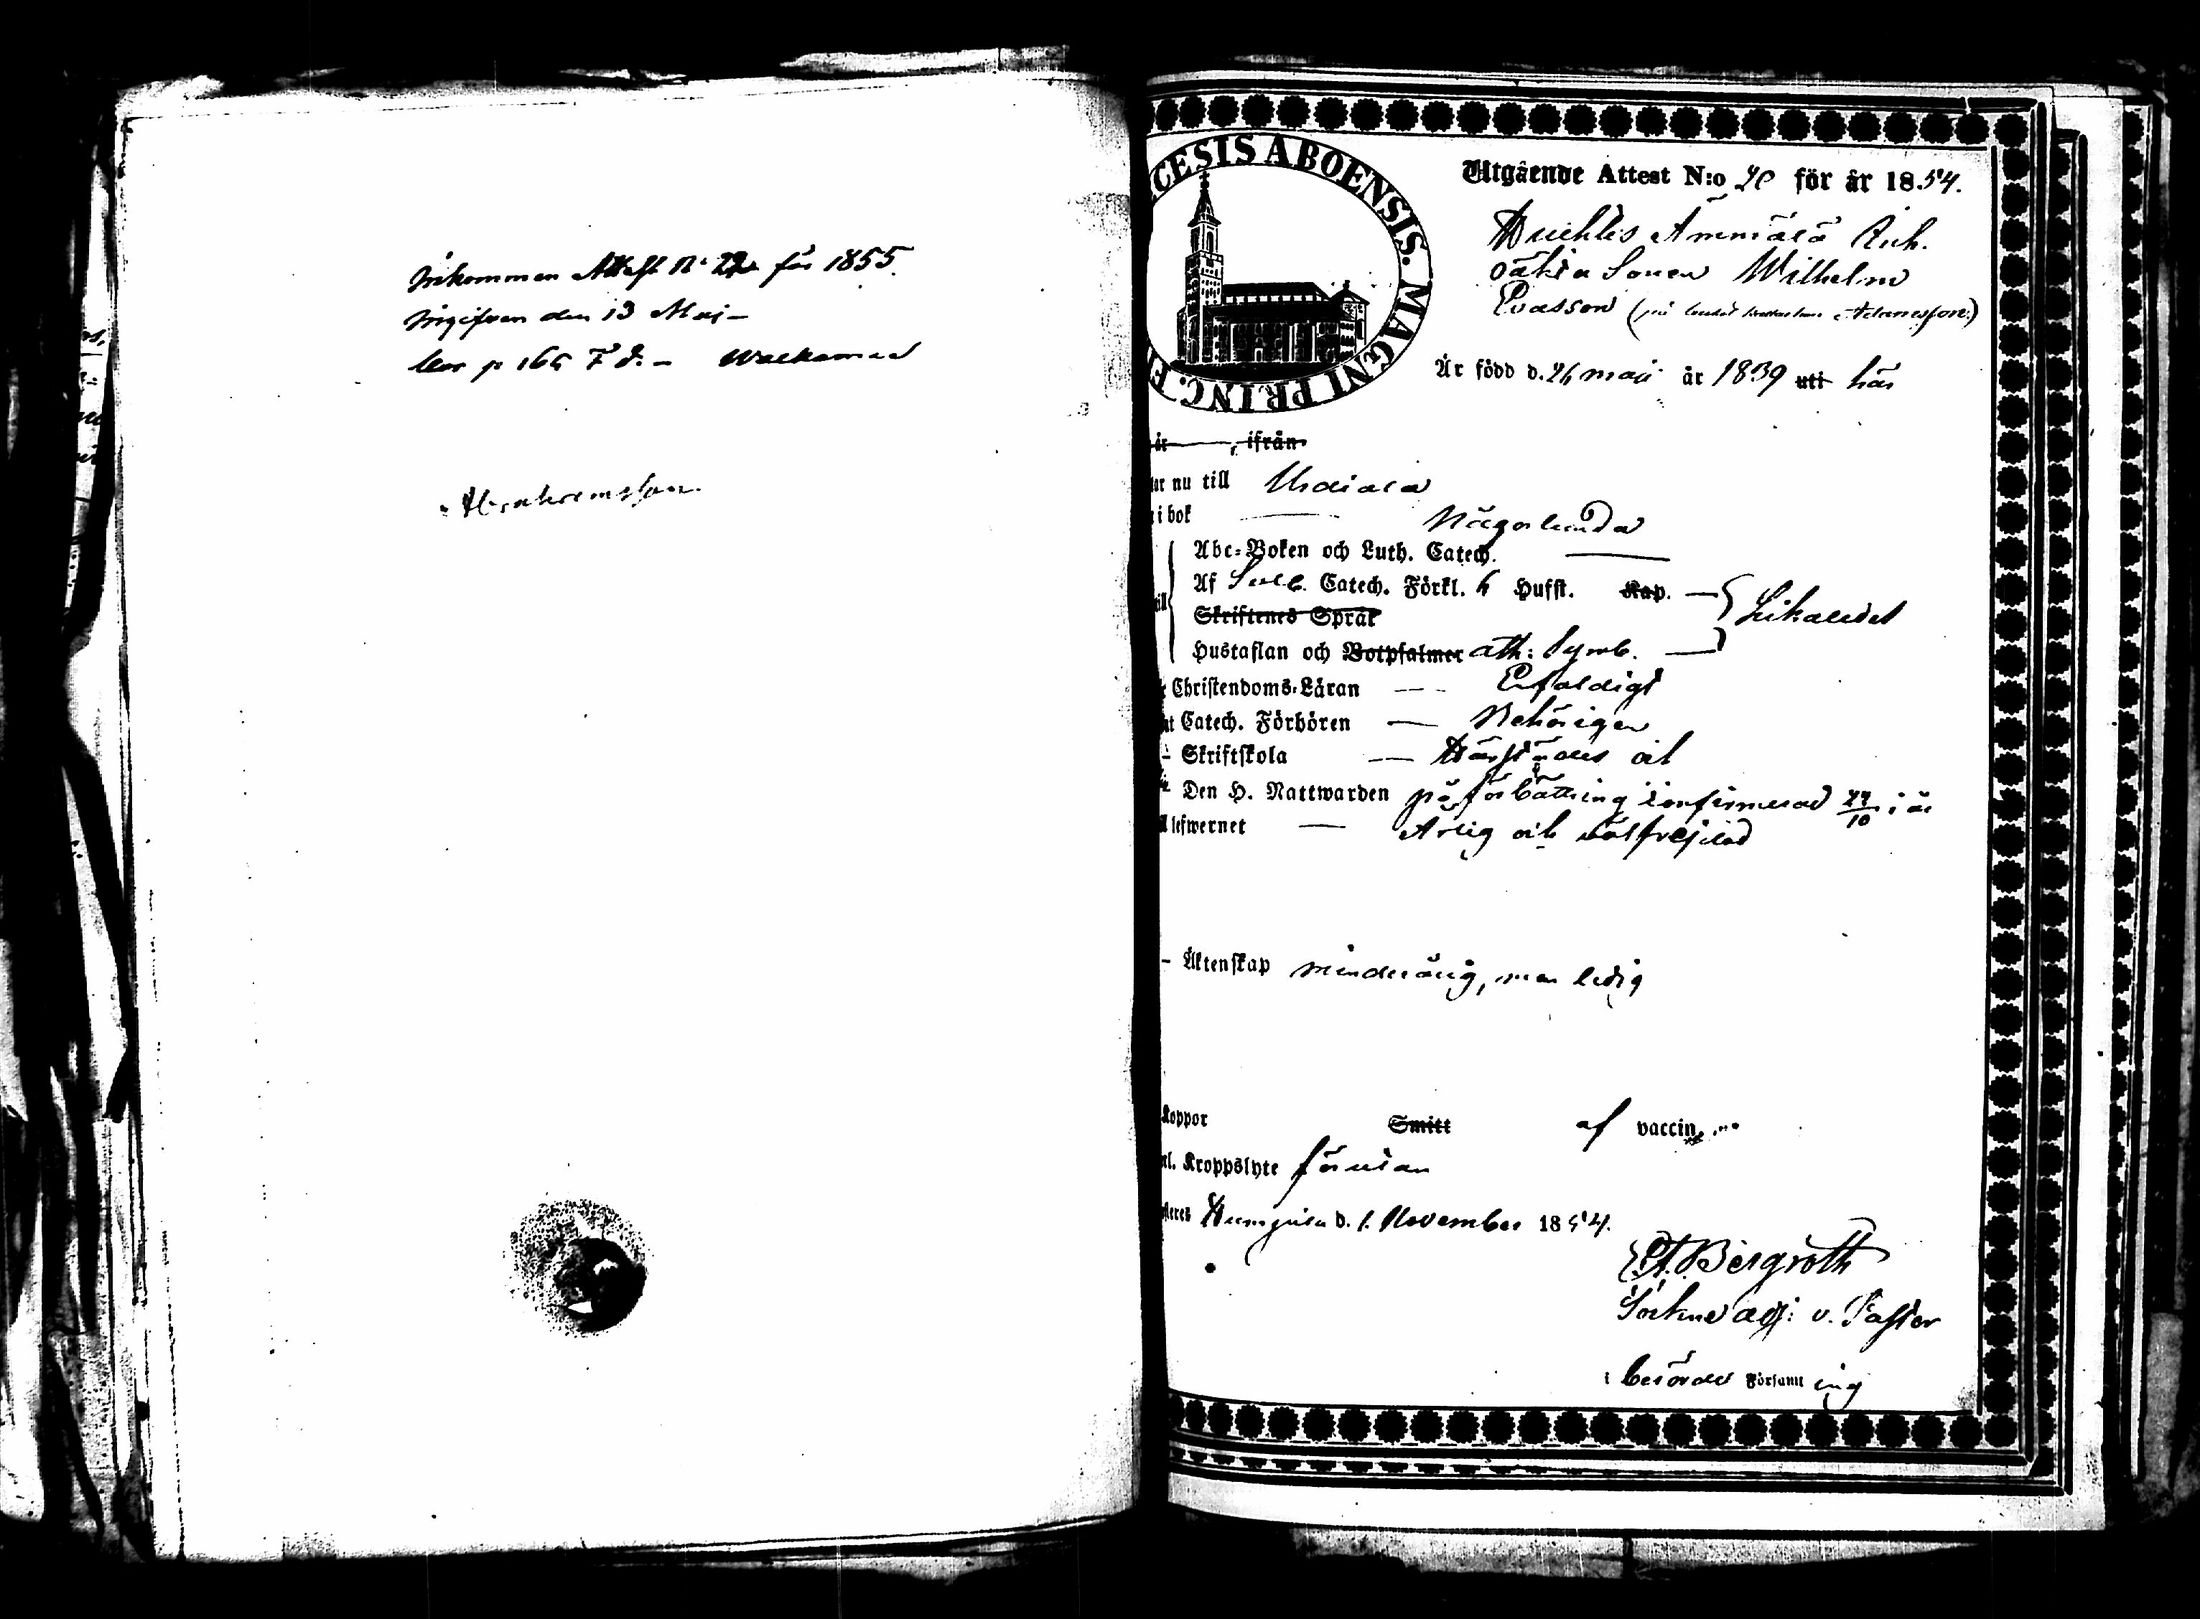 Inkommen Attest N: 22 för 1855.
Ingifven den 13 Maj –
p 165 F d. –
Abrahamsson
CESIS ABOENSIS. MAGNI PRINC. F
Utgående Attest N:o 70 för år 1854.
Huchtis Ämmälä Enk.
oäkta Sonen Wilhelm
Evasson (på
Är född d. 26 maji år 1839 uti här
år , ifrån
nu till Urdiala
i bok — Någorlunda
Abc-Boken och Luth. Catech. —
Af Sveb. Catech. Förkl. 6 Hufst. Kap. —
Skriftenes Språk
Likaledes
Hustaflan och Botpsalmer ath: Symb. —
Christendoms-Läran — Enfaldigt
Catech. Förhören — Behörigen
Skriftskola — Härstädes och
Den H. Nattwarden på förbättring confirmerad 29/10 i år
lefwernet — Ärlig och välfrejdad
– Äktenskap minderårig, men ledig
Koppor Smitt af vaccin
Kroppslyte förutan
Humppila d. 1. November 1854.
Bergroth
Sockne adj: v. Pastor
i berörde Församl ing